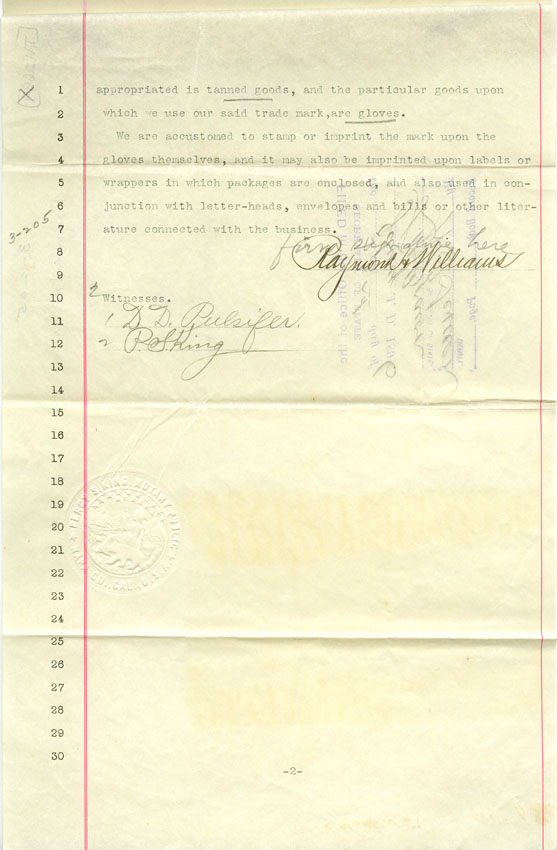 1 appropriated is tanned goods, and the particular goods upon
2 which we use our said trade mark,are gloves.
3 We are accustomed to stamp or imprint the mark upon the
4 gloves themselves, and it may also be imprinted upon labels or
5 wrappers in which packages are enclosed, and also used in con-
6 junction with letter-heads, envelopes and bills or other liter-
7 ature connected with the business.
3-205
firm sign here
8 Raymond & Williams
9
10 2 Witnesses.
11 1 D. D. Pulsifer.
12 2 P. S. King
13
14
15
16
17
18
19
20
21
22
23
24
25
26
27
28
29
30
PERCY S. KING, NOTARY PUBLIC
NAPA CO., CAL., U.S.A.
-2-